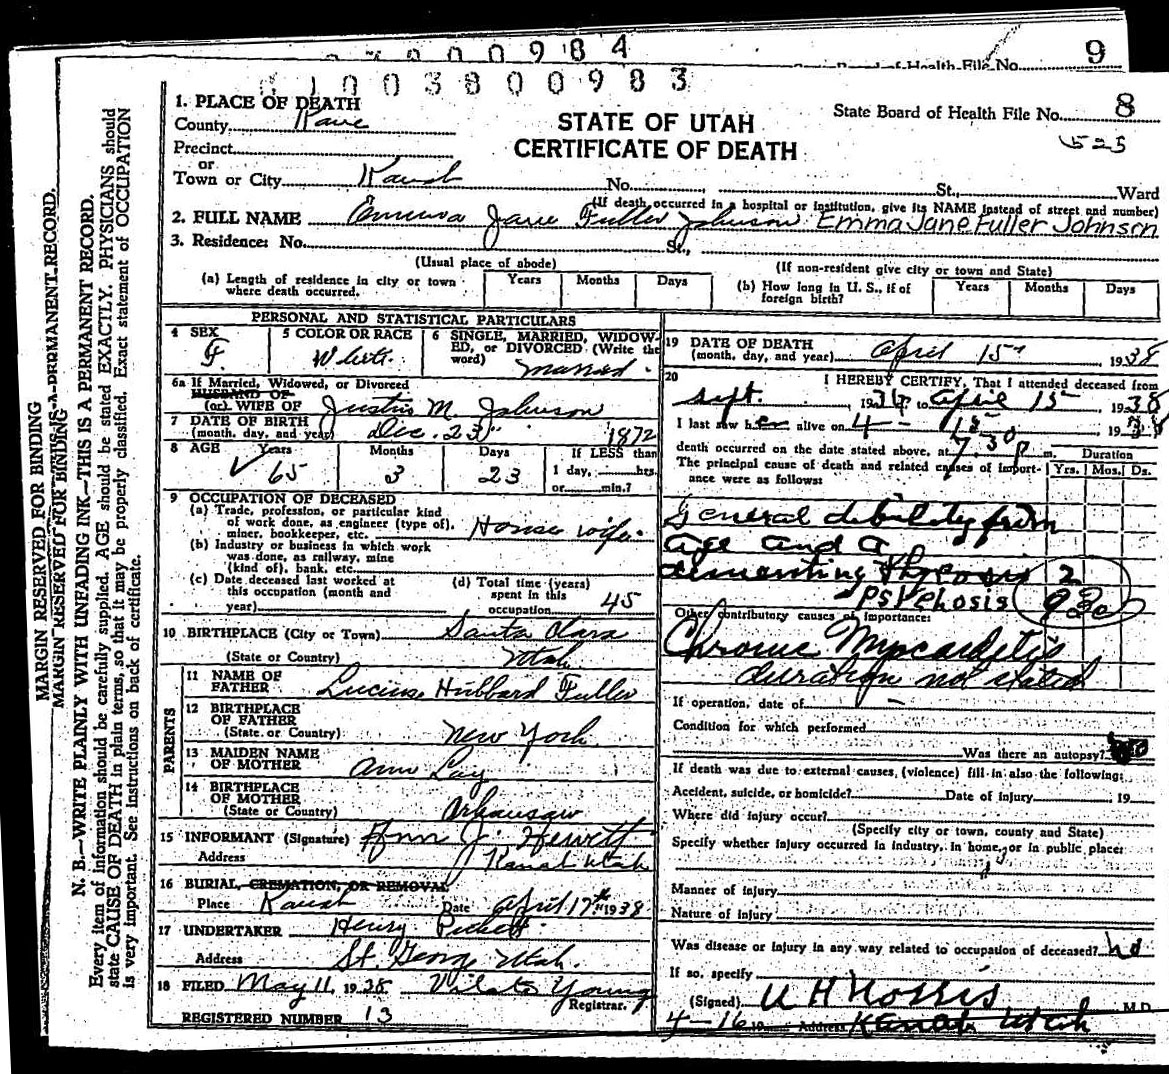 9
State Board of Health File No. 8
525
1. PLACE OF DEATH
County Kane
STATE OF UTAH
CERTIFICATE OF DEATH
Precinct
or
Town or City Kanab No. St., Ward
(If death occurred in a hospital or institution, give its NAME instead of street and number)
2. FULL NAME Emma Jane Fuller Johnson Emma Jane Fuller Johnson
3. Residence: No. St.,
(Usual place of abode) (If non-resident give city or town and State)
(a) Length of residence in city or town where death occurred. Years Months Days
(b) How long in U. S., if of foreign birth? Years Months Days
PERSONAL AND STATISTICAL PARTICULARS
4 SEX F.
5 COLOR OR RACE White
6 SINGLE, MARRIED, WIDOWED, or DIVORCED (Write the word) Married
6a If Married, Widowed, or Divorced
HUSBAND OF
(or) WIFE OF Justin M. Johnson
7 DATE OF BIRTH
(month, day, and year) Dec. 23 1872
8 AGE Years 65 Months 3 Days 23 If LESS than
1 day, hrs.
or min.?
9 OCCUPATION OF DECEASED
(a) Trade, profession, or particular kind
of work done, as engineer (type of),
miner, bookkeeper, etc. House wife
(b) Industry or business in which work
was done, as railway, mine
(kind of), bank, etc.
(c) Date deceased last worked at
this occupation (month and
year)
(d) Total time (years)
spent in this
occupation 45
10 BIRTHPLACE (City or Town) Santa Clara
(State or Country) Utah
PARENTS
11 NAME OF
FATHER Lucius Hubbard Fuller
12 BIRTHPLACE
OF FATHER
(State or Country) New York
13 MAIDEN NAME
OF MOTHER Ann Lay
14 BIRTHPLACE
OF MOTHER
(State or Country) Arkansaw
15 INFORMANT (Signature) Ann J. Hewett
Address Kanab Utah
16 BURIAL, CREMATION, OR REMOVAL
Place Kanab Date April 17th 1938
17 UNDERTAKER Henry
Address St. George Utah.
18 FILED May 11, 1938 Young
Registrar.
REGISTERED NUMBER 13
19 DATE OF DEATH
(month, day, and year) April 15 1938
20 I HEREBY CERTIFY, That I attended deceased from
Sept. to April 15 1938
I last saw her alive on 4 - 15 1938
death occurred on the date stated above, at 7:30 P m. Duration
The principal cause of death and related causes of importance were as follows: Yrs. Mos. Ds.
General debility from
age and a
dementing 2
psychosis
Other contributory causes of importance:
Chronic Myocarditis
duration not stated
If operation, date of
Condition for which performed
Was there an autopsy? no
If death was due to external causes, (violence) fill in also the following:
Accident, suicide, or homicide? Date of injury 19
Where did injury occur?
(Specify city or town, county and State)
Specify whether injury occurred in industry, in home, or in public place:
Manner of injury
Nature of injury
Was disease or injury in any way related to occupation of deceased? no
If so, specify
(Signed) Norris M.D.
4-16 19 Address Kanab Utah
MARGIN RESERVED FOR BINDING
MARGIN RESERVED FOR BINDING
N. B.—WRITE PLAINLY WITH UNFADING INK—THIS IS A PERMANENT RECORD.
Every item of information should be carefully supplied. AGE should be stated EXACTLY. PHYSICIANS should
state CAUSE OF DEATH in plain terms, so that it may be properly classified. Exact statement of OCCUPATION
is very important. See instructions on back of certificate.